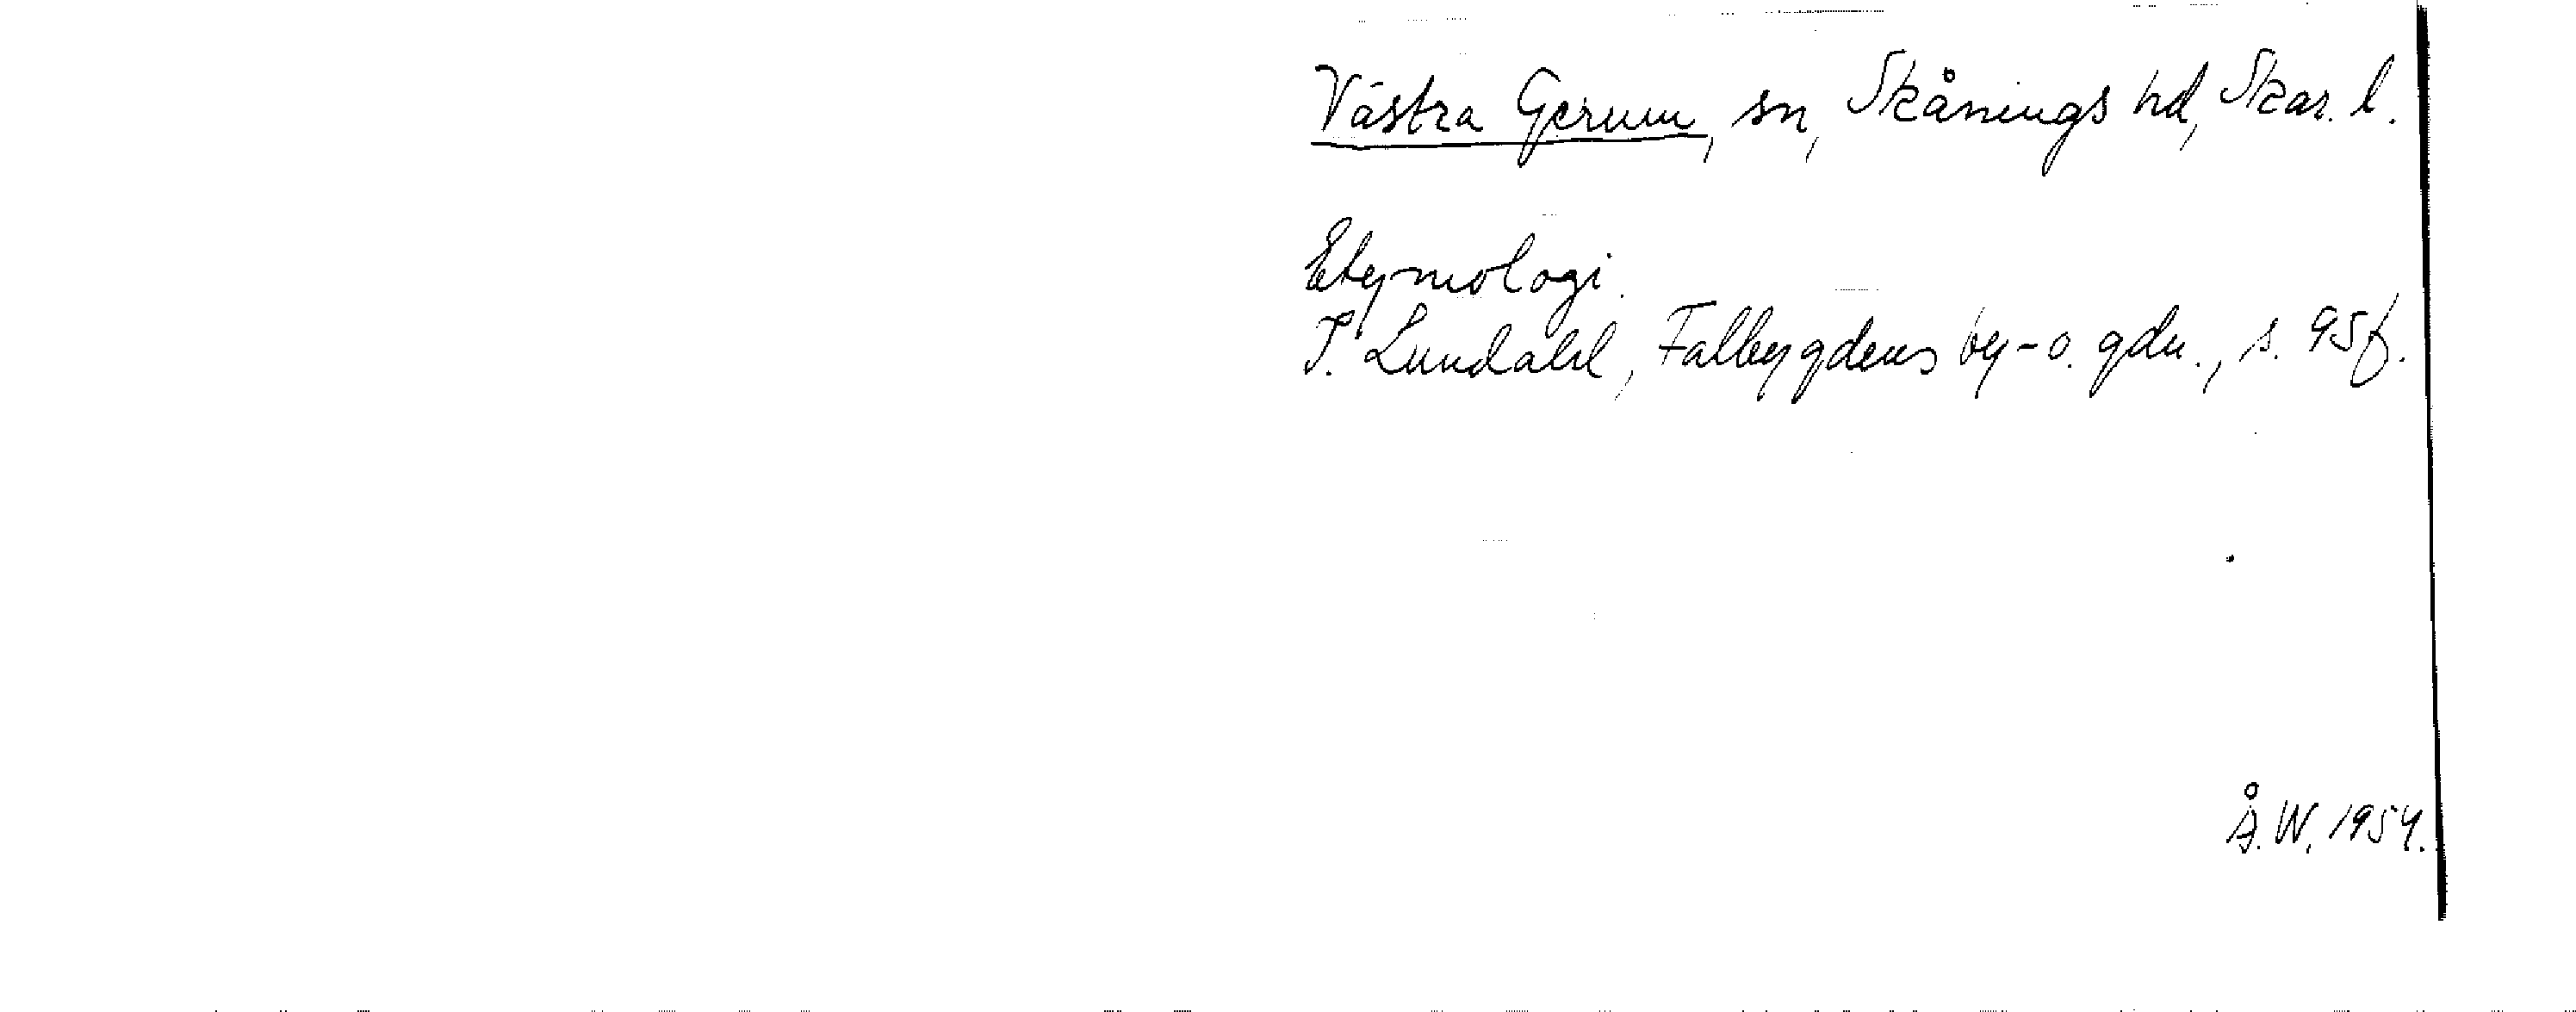 Västra Gerum, sn, Skånings hd, Skar. l.
Etymologi.
I. Lundahl, Falbygdens by- o. gdn., s. 95 f.
Å. W. 1954.